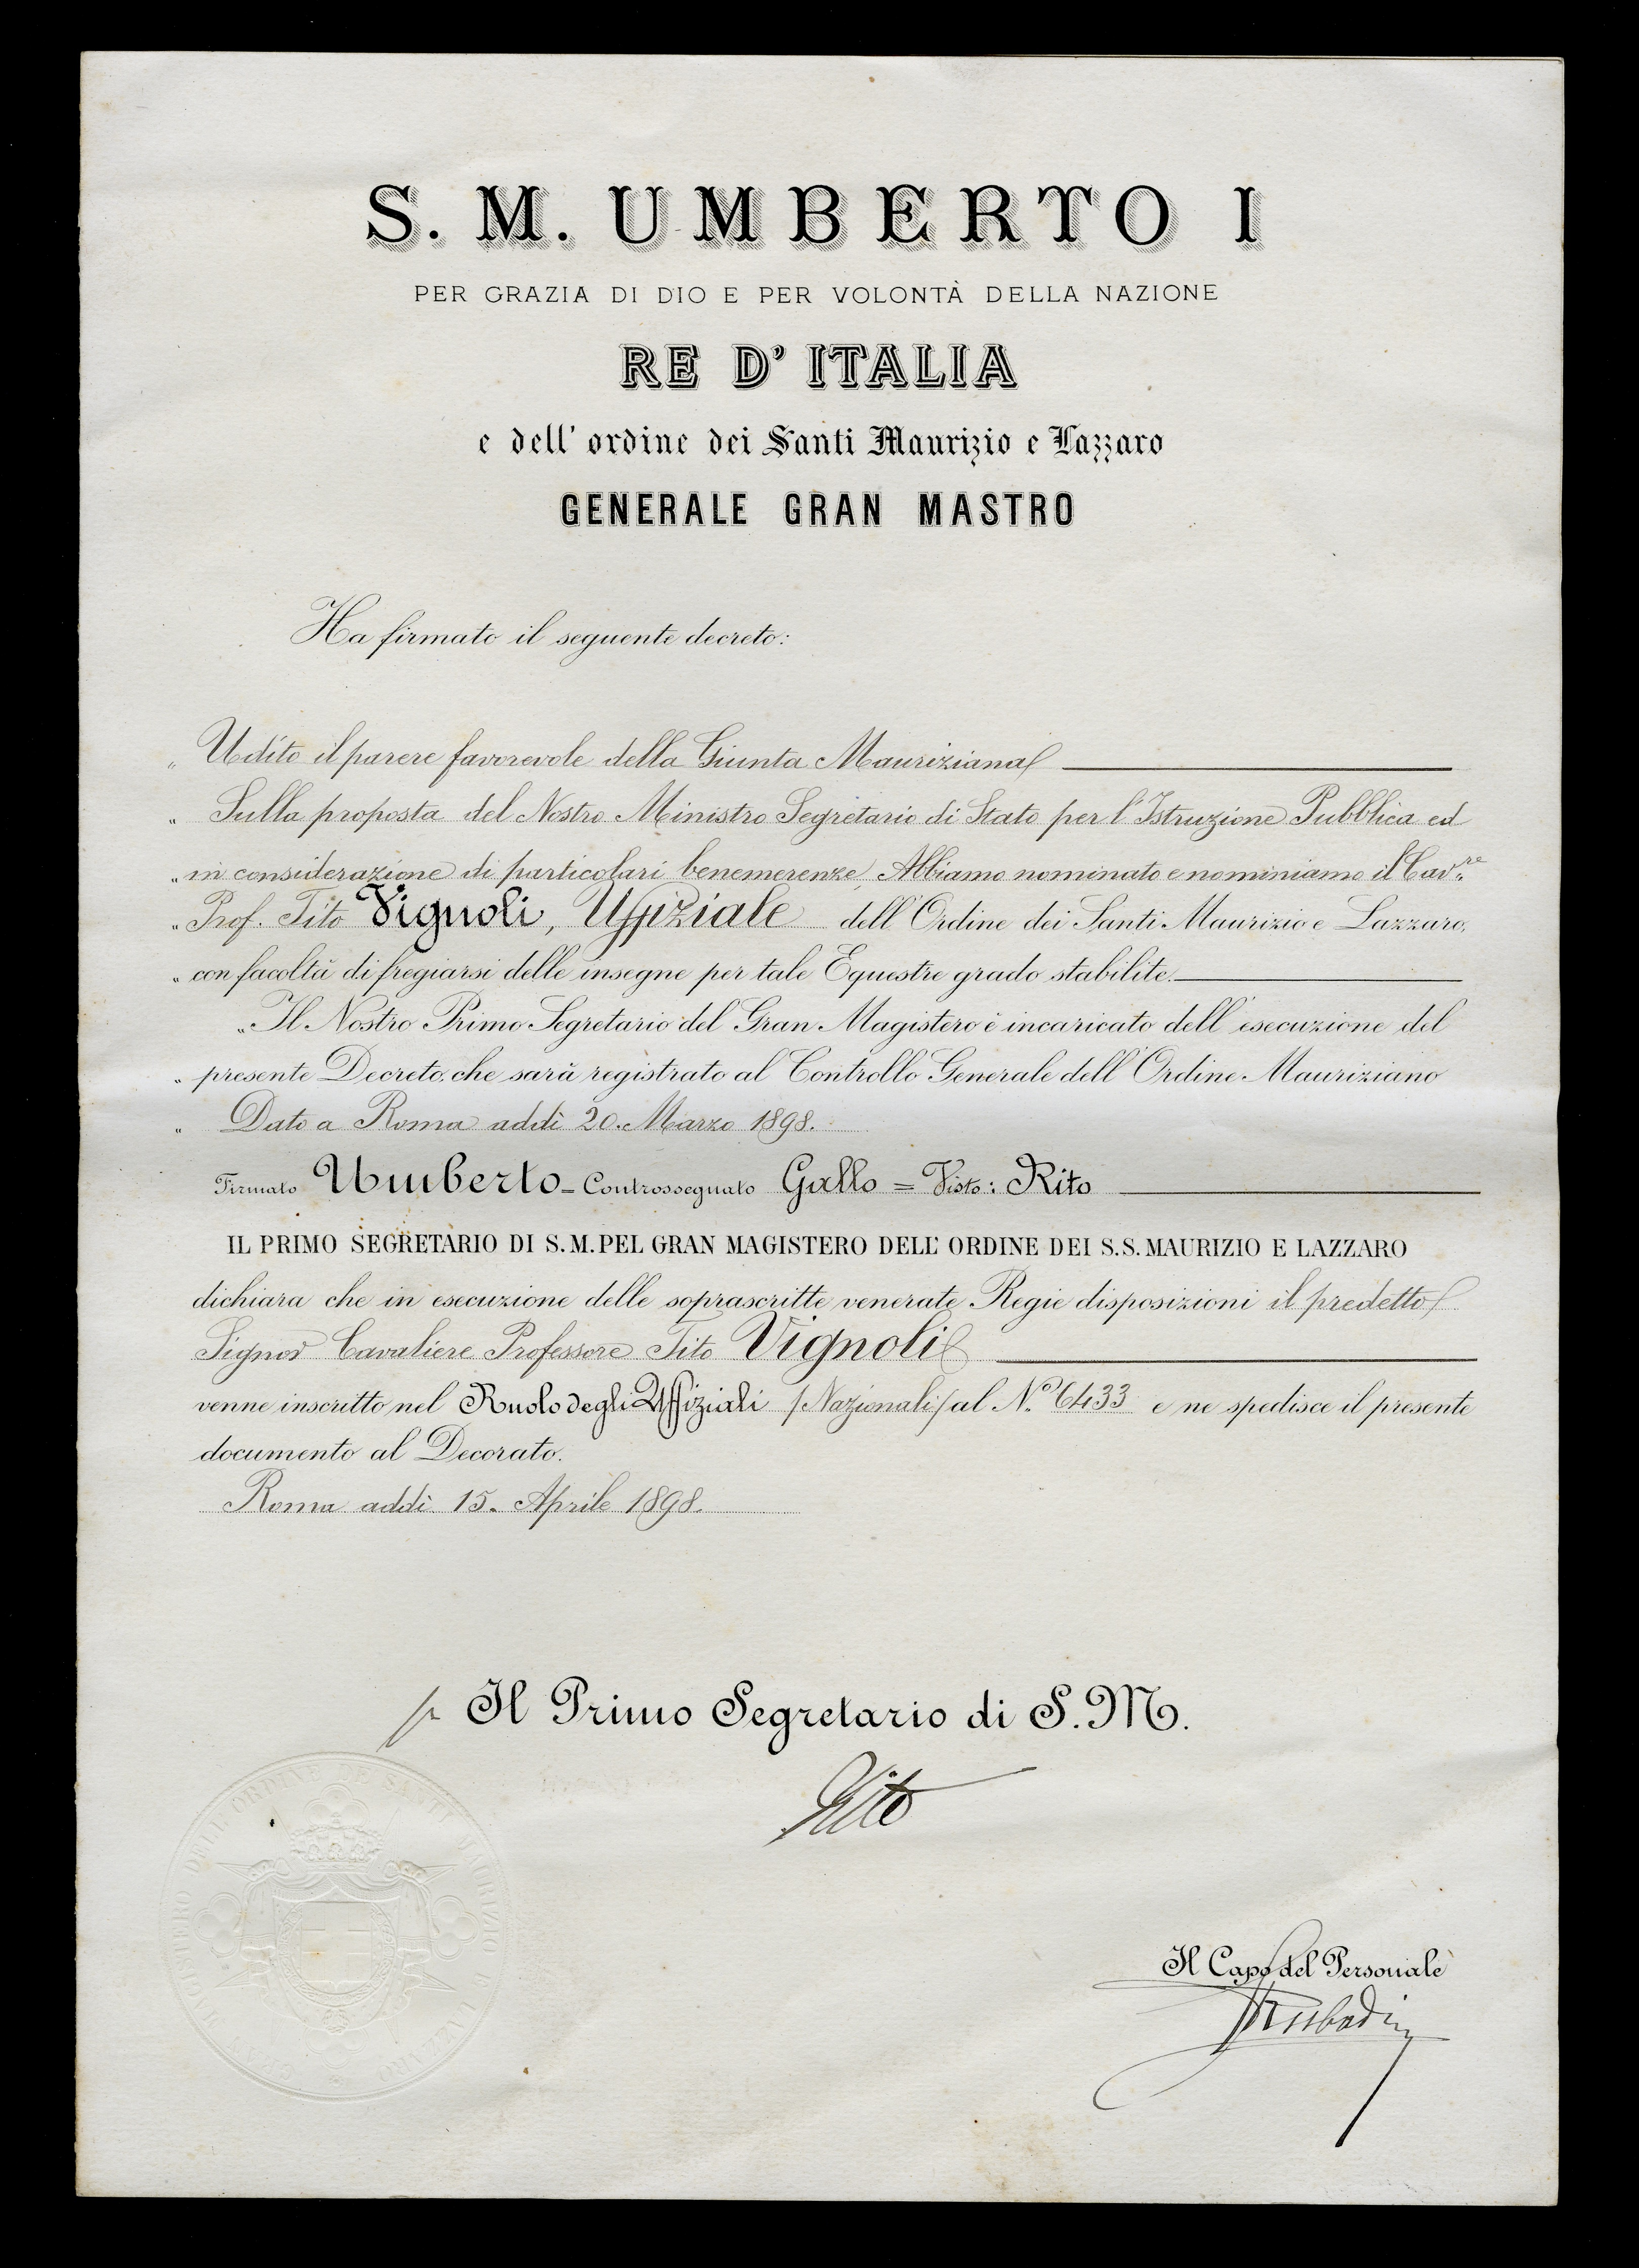 S. M. UMBERTO I
PER GRAZIA DI DIO E PER VOLONTÀ DELLA NAZIONE
RE D' ITALIA
e dell' ordine dei Santi Maurizio e Lazzaro
GENERALE GRAN MASTRO
Ha firmato il seguente decreto:
„ Udito il parere favorevole della Giunta Mauriziana
„ Sulla proposta del Nostro Ministro Segretario di Stato per l'Istruzione Pubblica ed
„ in considerazione di particolari benemerenze, Abbiamo nominato e nominiamo il Cav.re
„ Prof. Tito Vignoli, Uffiziale dell'Ordine dei Santi Maurizio e Lazzaro,
„ con facoltà di fregiarsi delle insegne per tale Equestre grado stabilite.
„ Il Nostro Primo Segretario del Gran Magistero è incaricato dell'esecuzione del
„ presente Decreto, che sarà registrato al Controllo Generale dell'Ordine Mauriziano
„ Dato a Roma addì 20. Marzo 1898.
Firmato Umberto = Controssegnato Gallo = Visto: Rito
IL PRIMO SEGRETARIO DI S. M. PEL GRAN MAGISTERO DELL' ORDINE DEI S.S. MAURIZIO E LAZZARO
dichiara che in esecuzione delle soprascritte venerate Regie disposizioni il predetto
Signor Cavaliere Professore Tito Vignoli
venne inscritto nel Ruolo degli Uffiziali /Nazionali/ al N.o 6433 e ne spedisce il presente
documento al Decorato.
Roma addì 15. Aprile 1898.
p. Il Primo Segretario di S. M.
Rito
Il Capo del Personale